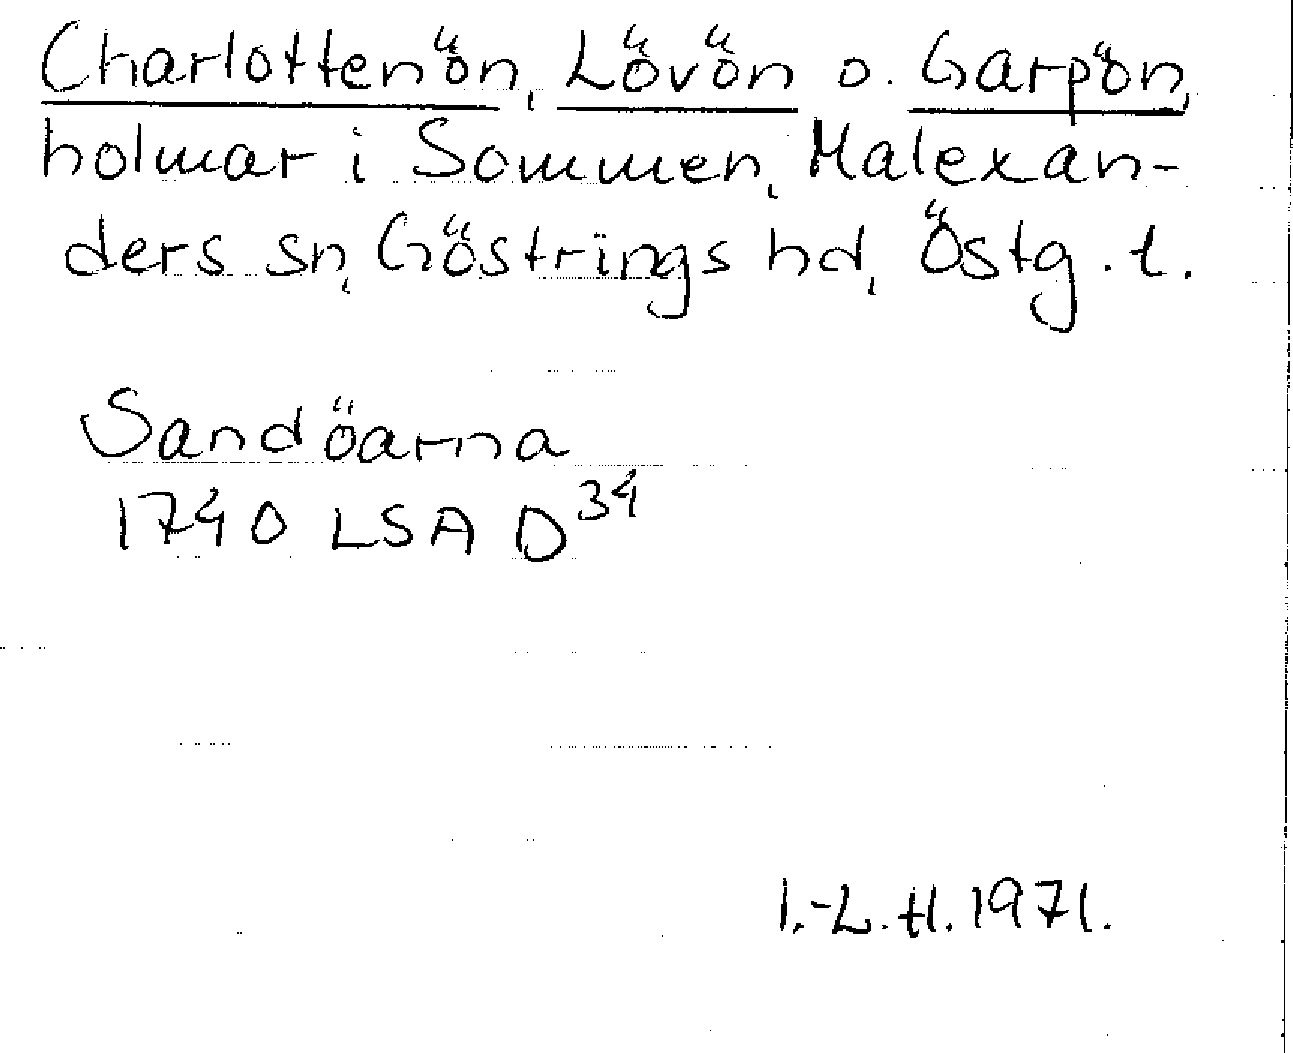 Charlottenön, Lövön o. Garpön,
holmar i Sommen, Malexan-
ders sn, Göstrings hd, Östg. l.
Sandöarna
1740 LSA D34
I.-L. H. 1971.